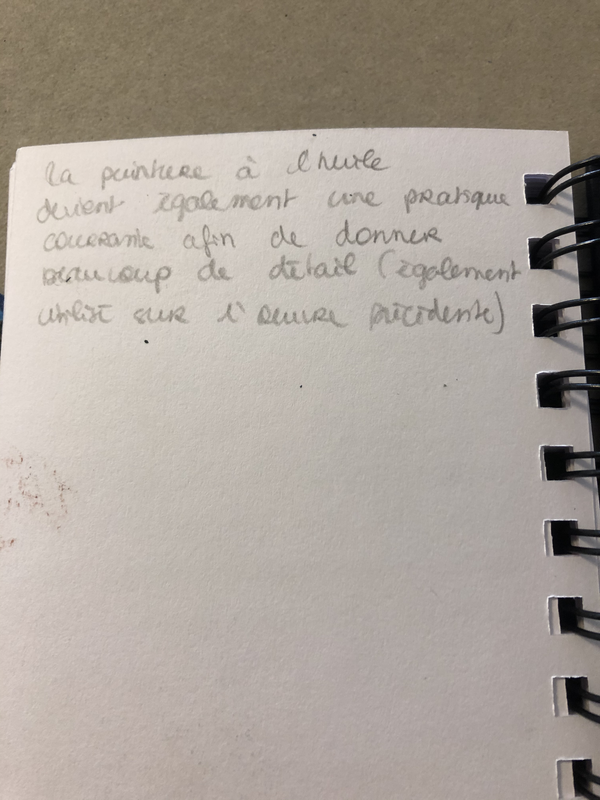 La peinture à l'huile
devient également une pratique
courante afin de donner
beaucoup de détail (également
utilisé sur l'oeuvre précédente)